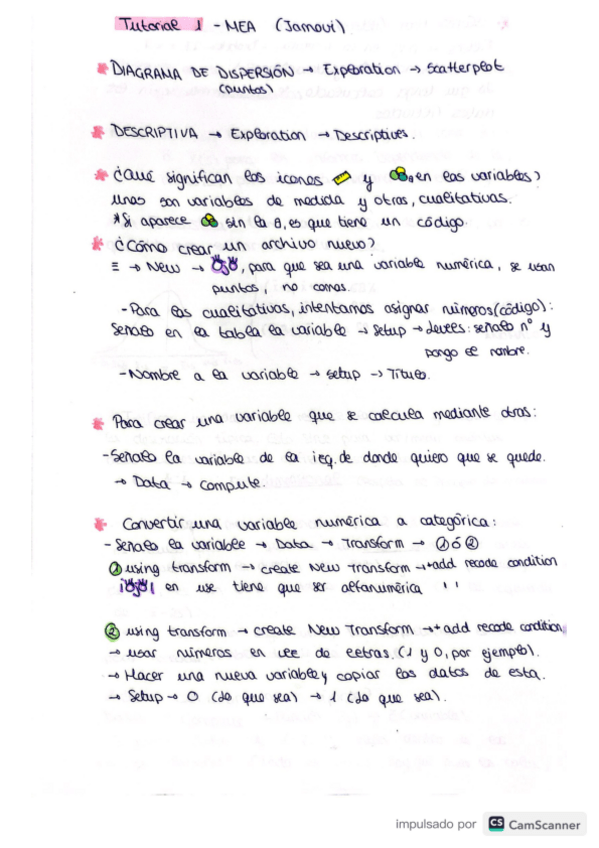 Tutorial 1 - MEA (Jamovi)
* DIAGRAMA DE DISPERSIÓN → Exploration → Scatterplot
(puntos)
* DESCRIPTIVA → Exploration → Descriptives.
* ¿Qué significan los iconos y a en las variables?
Unas son variables de medida y otras, cualitativas.
* Si aparece sin la a, es que tiene un código.
* ¿Cómo crear un archivo nuevo?
≡ → New → OJO, para que sea una variable numérica, se usan
puntos, no comas.
- Para las cualitativas, intentamos asignar números (código):
Señalo en la tabla la variable → Setup → levels: señalo nº y
pongo el nombre.
- Nombre a la variable → setup → Título.
* Para crear una variable que se calcula mediante otras:
- Señalo la variable de la izq. de donde quiero que se quede.
→ Data → compute.
* Convertir una variable numérica a categórica:
- Señalo la variable → Data → Transform → ① ó ②
① using transform → create New Transform → + add recode condition
¡OJO! en use tiene que ser alfanumérica ' '
② using transform → create New Transform → + add recode condition
→ usar números en vez de letras. (1 y 0, por ejemplo).
→ Hacer una nueva variable y copiar los datos de esta.
→ Setup → 0 (lo que sea) → 1 (lo que sea).
impulsado por CS CamScanner